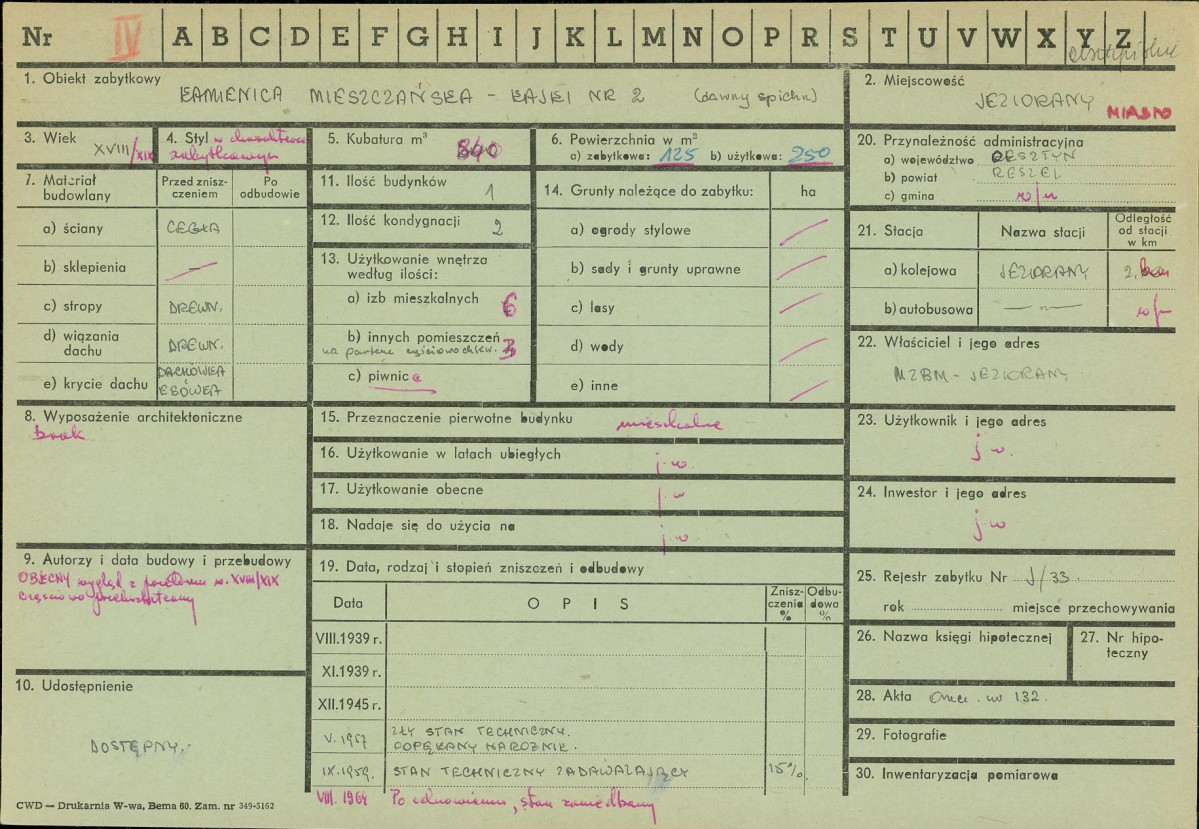 Nr IV A B C D E F G H I J K L M N O P R S T U V W X Y Z
1. Obiekt zabytkowy
KAMIENICA MIESZCZAŃSKA – KAJKI NR 2 (dawny spichrz)
2. Miejscowość
JEZIORANY MIASTO
3. Wiek XVIII/XIX
4. Styl
zabytkowym
5. Kubatura m³ 840
6. Powierzchnia w m²
a) zabytkowa: 125 b) użytkowa: 250
20. Przynależność administracyjna
a) województwo OLSZTYN
b) powiat RESZEL
c) gmina w/m
7. Materiał budowlany
Przed znisz-
czeniem
Po
odbudowie
a) ściany CEGŁA
b) sklepienia —
c) stropy DREWN.
d) wiązania
dachu DREWN.
e) krycie dachu DACHÓWKA
ESÓWKA
11. Ilość budynków 1
12. Ilość kondygnacji 2
13. Użytkowanie wnętrza
według ilości:
a) izb mieszkalnych 6
b) innych pomieszczeń
na parterze częściowo
c) piwnice
14. Grunty należące do zabytku: ha
a) ogrody stylowe
b) sady i grunty uprawne
c) lasy
d) wody
e) inne
21. Stacja
Nazwa stacji
Odległość
od stacji
w km
a) kolejowa JEZIORANY 2
b) autobusowa — „ — w/m
22. Właściciel i jego adres
MZBM – JEZIORANY
8. Wyposażenie architektoniczne
brak
15. Przeznaczenie pierwotne budynku mieszkalne
16. Użytkowanie w latach ubiegłych j.w.
17. Użytkowanie obecne j.w
18. Nadaje się do użycia na j.w
23. Użytkownik i jego adres
j.w.
24. Inwestor i jego adres
j.w
9. Autorzy i data budowy i przebudowy
OBECNY wygląd z przełomu w. XVIII/XIX
częściowo przekształcony
10. Udostępnienie
DOSTĘPNY.
19. Data, rodzaj i stopień zniszczeń i odbudowy
Data
OPIS
Znisz-
czenia
%
Odbu-
dowa
%
VIII.1939 r.
XI.1939 r.
XII.1945 r.
V. 1957 ZŁY STAN TECHNICZNY.
POPĘKANY NAROŻNIK.
IX.1959. STAN TECHNICZNY ZADAWALAJĄCY 15%
VIII. 1964 Po odnowieniu, stan zaniedbany
25. Rejestr zabytku Nr J/33
rok miejsce przechowywania
26. Nazwa księgi hipotecznej
27. Nr hipo-
teczny
28. Akta Orzecz. nr 132.
29. Fotografie
30. Inwentaryzacja pomiarowa
CWD — Drukarnia W-wa, Bema 60. Zam. nr 349-5162